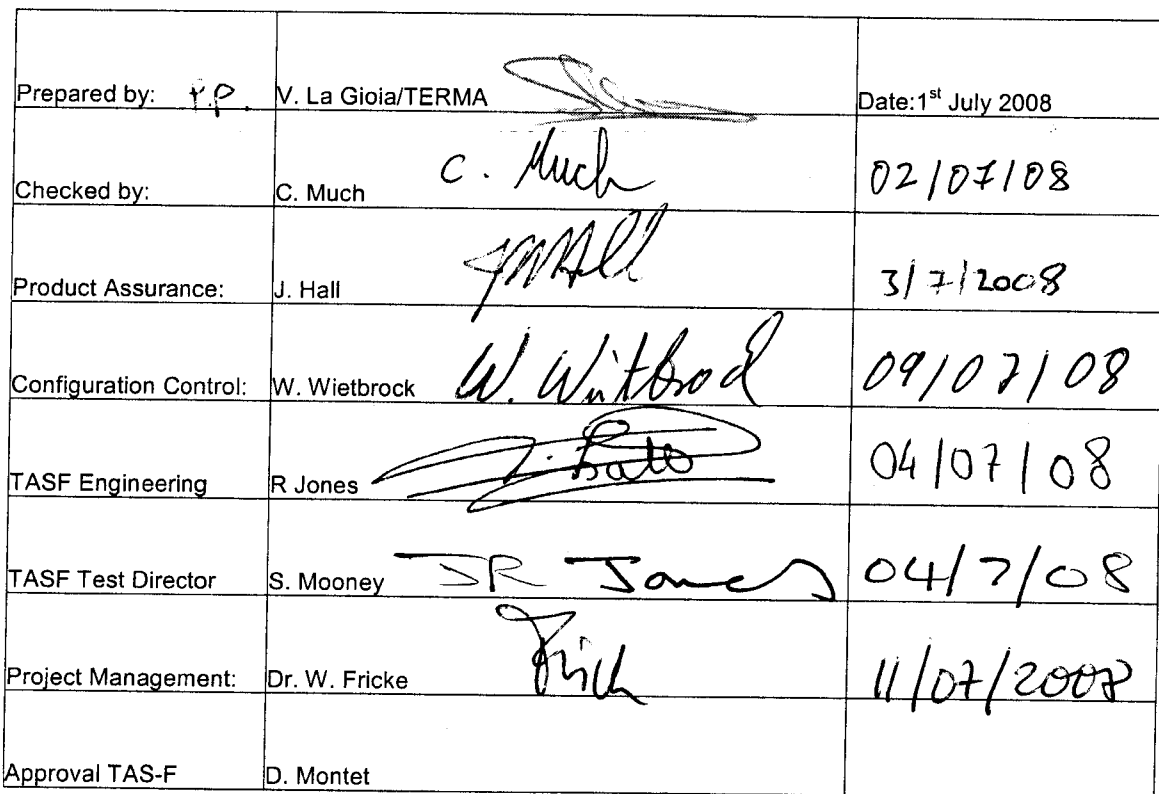 Prepared by: P.P. V. La Gioia/TERMA Date:1st July 2008
Checked by: C. Much C. Much 02/07/08
Product Assurance: J. Hall JMHall 3/7/2008
Configuration Control: W. Wietbrock W. Wietbrock 09/07/08
TASF Engineering R Jones 04/07/08
TASF Test Director S. Mooney JR Jones 04/7/08
Project Management: Dr. W. Fricke Fricke 11/07/2008
Approval TAS-F D. Montet